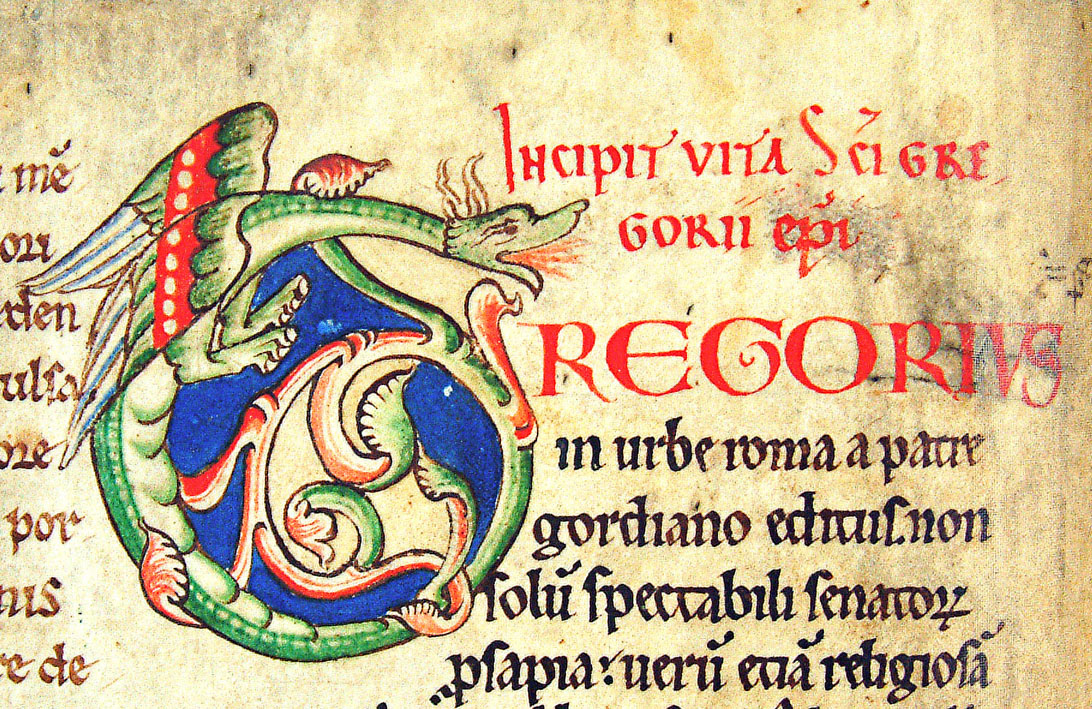 mē
ori
eden
ulsa
ore
por
tus
re de
Incipit vita Sc̄i Gre
gorii ep̄i
GREGORIUS
in urbe roma a patre
gordiano editus. non
solū spectabili senatoꝝ
ꝓsapia: uerū etiā religiosā